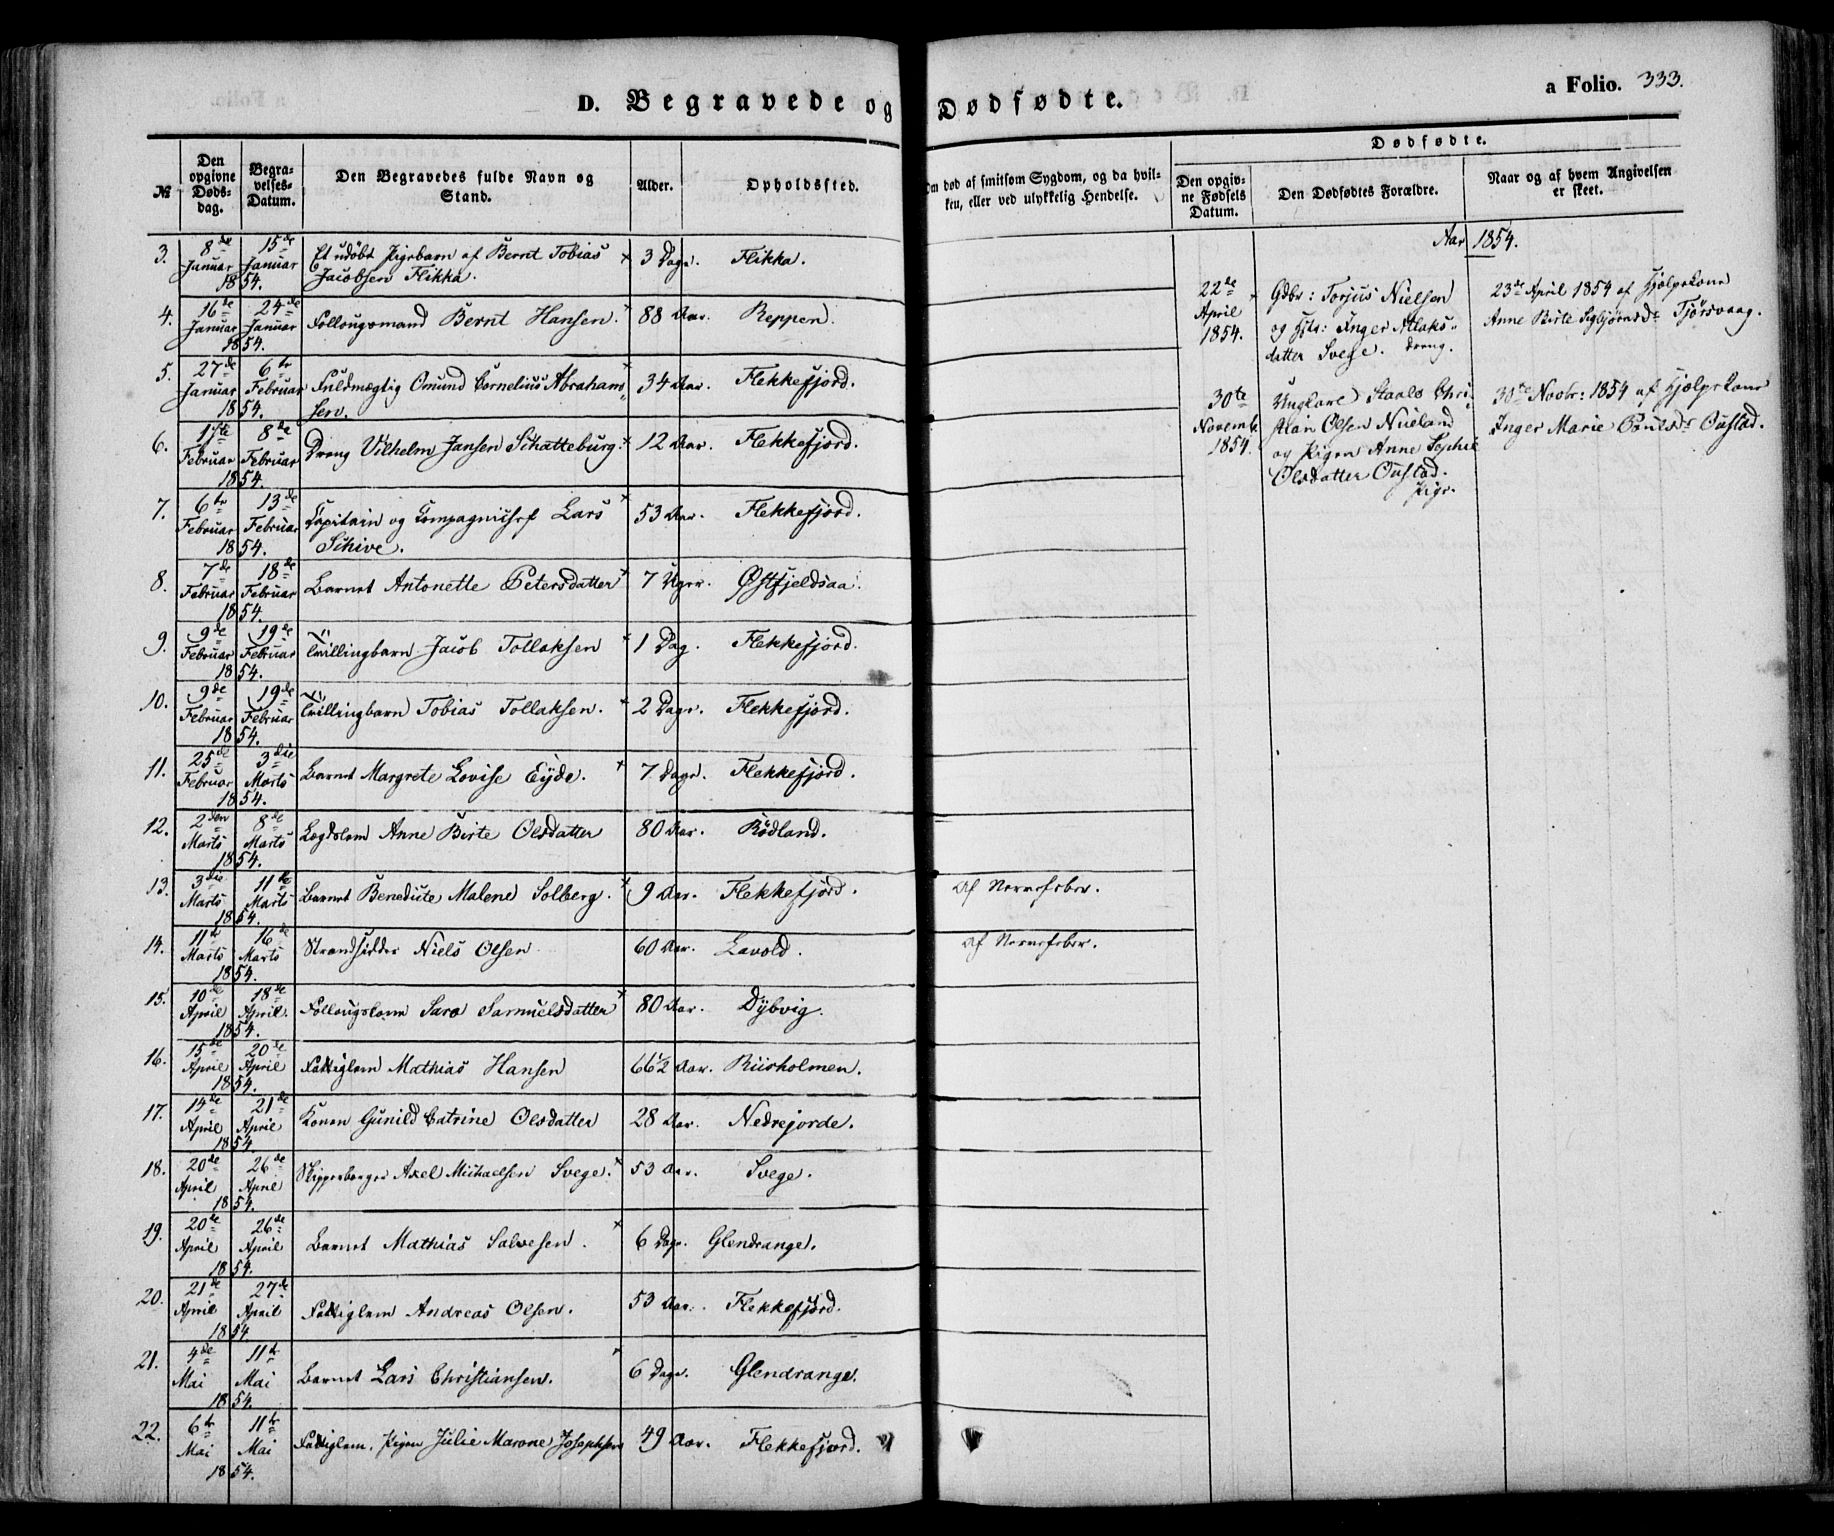 D. Begravede og Dødfødte.
a Folio. 333.
№
Den opgivne Døds-dag.
Begra-velses-Datum.
Den Begravedes fulde Navn og Stand.
Alder.
Opholdssted.
Om død af smitsom Sygdom, og da hvil-
ken, eller ved ulykkelig Hendelse.
Dødfødte.
Den opgiv-ne Fødsels Datum.
Den Dødfødtes Forældre.
Naar og af hvem Angivelsen er skeet.
3. 8de Januar 15de Januar 1854. Et udøbt Pigebarn af Bernt Tobias
Jacobsen Flikka. 3 Dage. Flikka.
4. 16de Januar 24de Januar 1854. Follougsmand Bernt Hansen. 88 Aar. Reppen.
5. 27de Januar 6te Februar 1854. Fuldmægtig Omund Cornelius Abraham
sen. 34 Aar. Flekkefjord.
6. 1ste Februar 8de Februar 1854. Dreng Vilhelm Jansen Schatteburg. 12 Aar. Flekkefjord.
7. 6te Februar 13de Februar 1854. Capitain og Compagnichef Lars
Schive. 53 Aar. Flekkefjord.
8. 7de Februar 18de Februar 1854. Barnet Antonette Petersdatter 7 Uger. Østfjeldsaa.
9. 9de Februar 19de Februar 1854. Tvillingbarn Jacob Tollaksen 1 Dag. Flekkefjord.
10. 9de Februar 19de Februar 1854. Tvillingbarn Tobias Tollaksen. 2 Dage. Flekkefjord.
11. 25de Februar 3die Marts 1854. Barnet Margrete Lovise Eyde. 7 Dage. Flekkefjord.
12. 2den Marts 8de Marts 1854. Lægdslem Anne Birte Olsdatter 80 Aar. Rødland.
13. 3die Marts 11te Marts 1854. Barnet Benedicte Malene Solberg. 9 Aar. Flekkefjord. Af Nervefeber.
14. 11te Marts 16de Marts 1854. Strandsidder Niels Olsen 60 Aar. Lavold. Af Nervefeber.
15. 10de April 18de April 1854. Follougskone Sara Samuelsdatter 80 Aar. Dybvig.
16. 15de April 20de April 1854. Fattiglem Mathias Hansen 66½ Aar. Riisholmen.
17. 14de April 21de April 1854 Konen Gunild Catrine Olsdatter 28 Aar. Nedrejorde.
18. 20de April 26de April 1854. Skipperborger Axel Michaelsen Svege. 53 Aar. Svege.
19. 20de April 26de April 1854. Barnet Mathias Salvesen. 6 Dage. Glendrange.
20. 21de April 27de April 1854 Fattiglem Andreas Olsen. 53 Aar. Flekkefjord.
21. 4de Mai 11te Mai 1854. Barnet Lars Christiansen. 6 Dage. Glendrange.
22. 6te Mai 11te Mai 1854. Fattiglem, Pigen Julie Marane Josephsen 49 Aar. Flekkefjord.
Aar 1854.
22de April 1854. Gdbr: Torjus Nielsen
og Hst: Inger Atlaks-
datter Svege. Dreng.
23de April 1854 af Hjelpekone
Anne Birte Sigbjørnsdr Tjørsvaag.
30te Novemb. 1854. Ungkarl Staale Chri-
stian Olsen Nueland
og Pigen Anne Sophie
Olsdatter Oustad.
Pige.
30te Novbr: 1854 af Hjelpekone
Inger Marie Poulsdr Oustad.